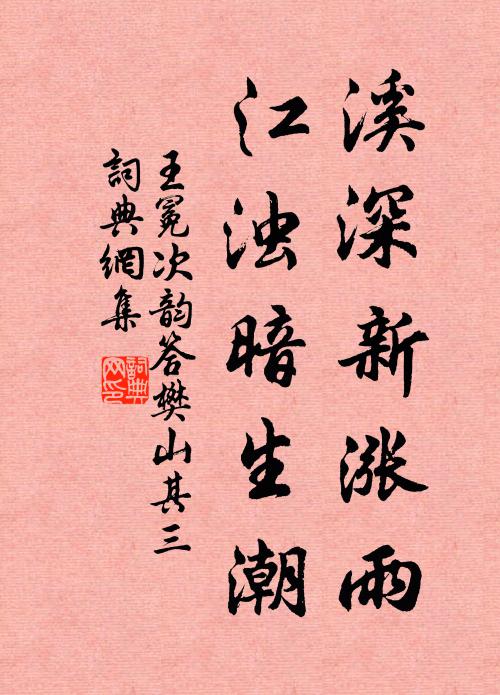 溪深新漲雨
江浊暗生潮
王冕次韵答樊山其三
詞典網集
詞典网印